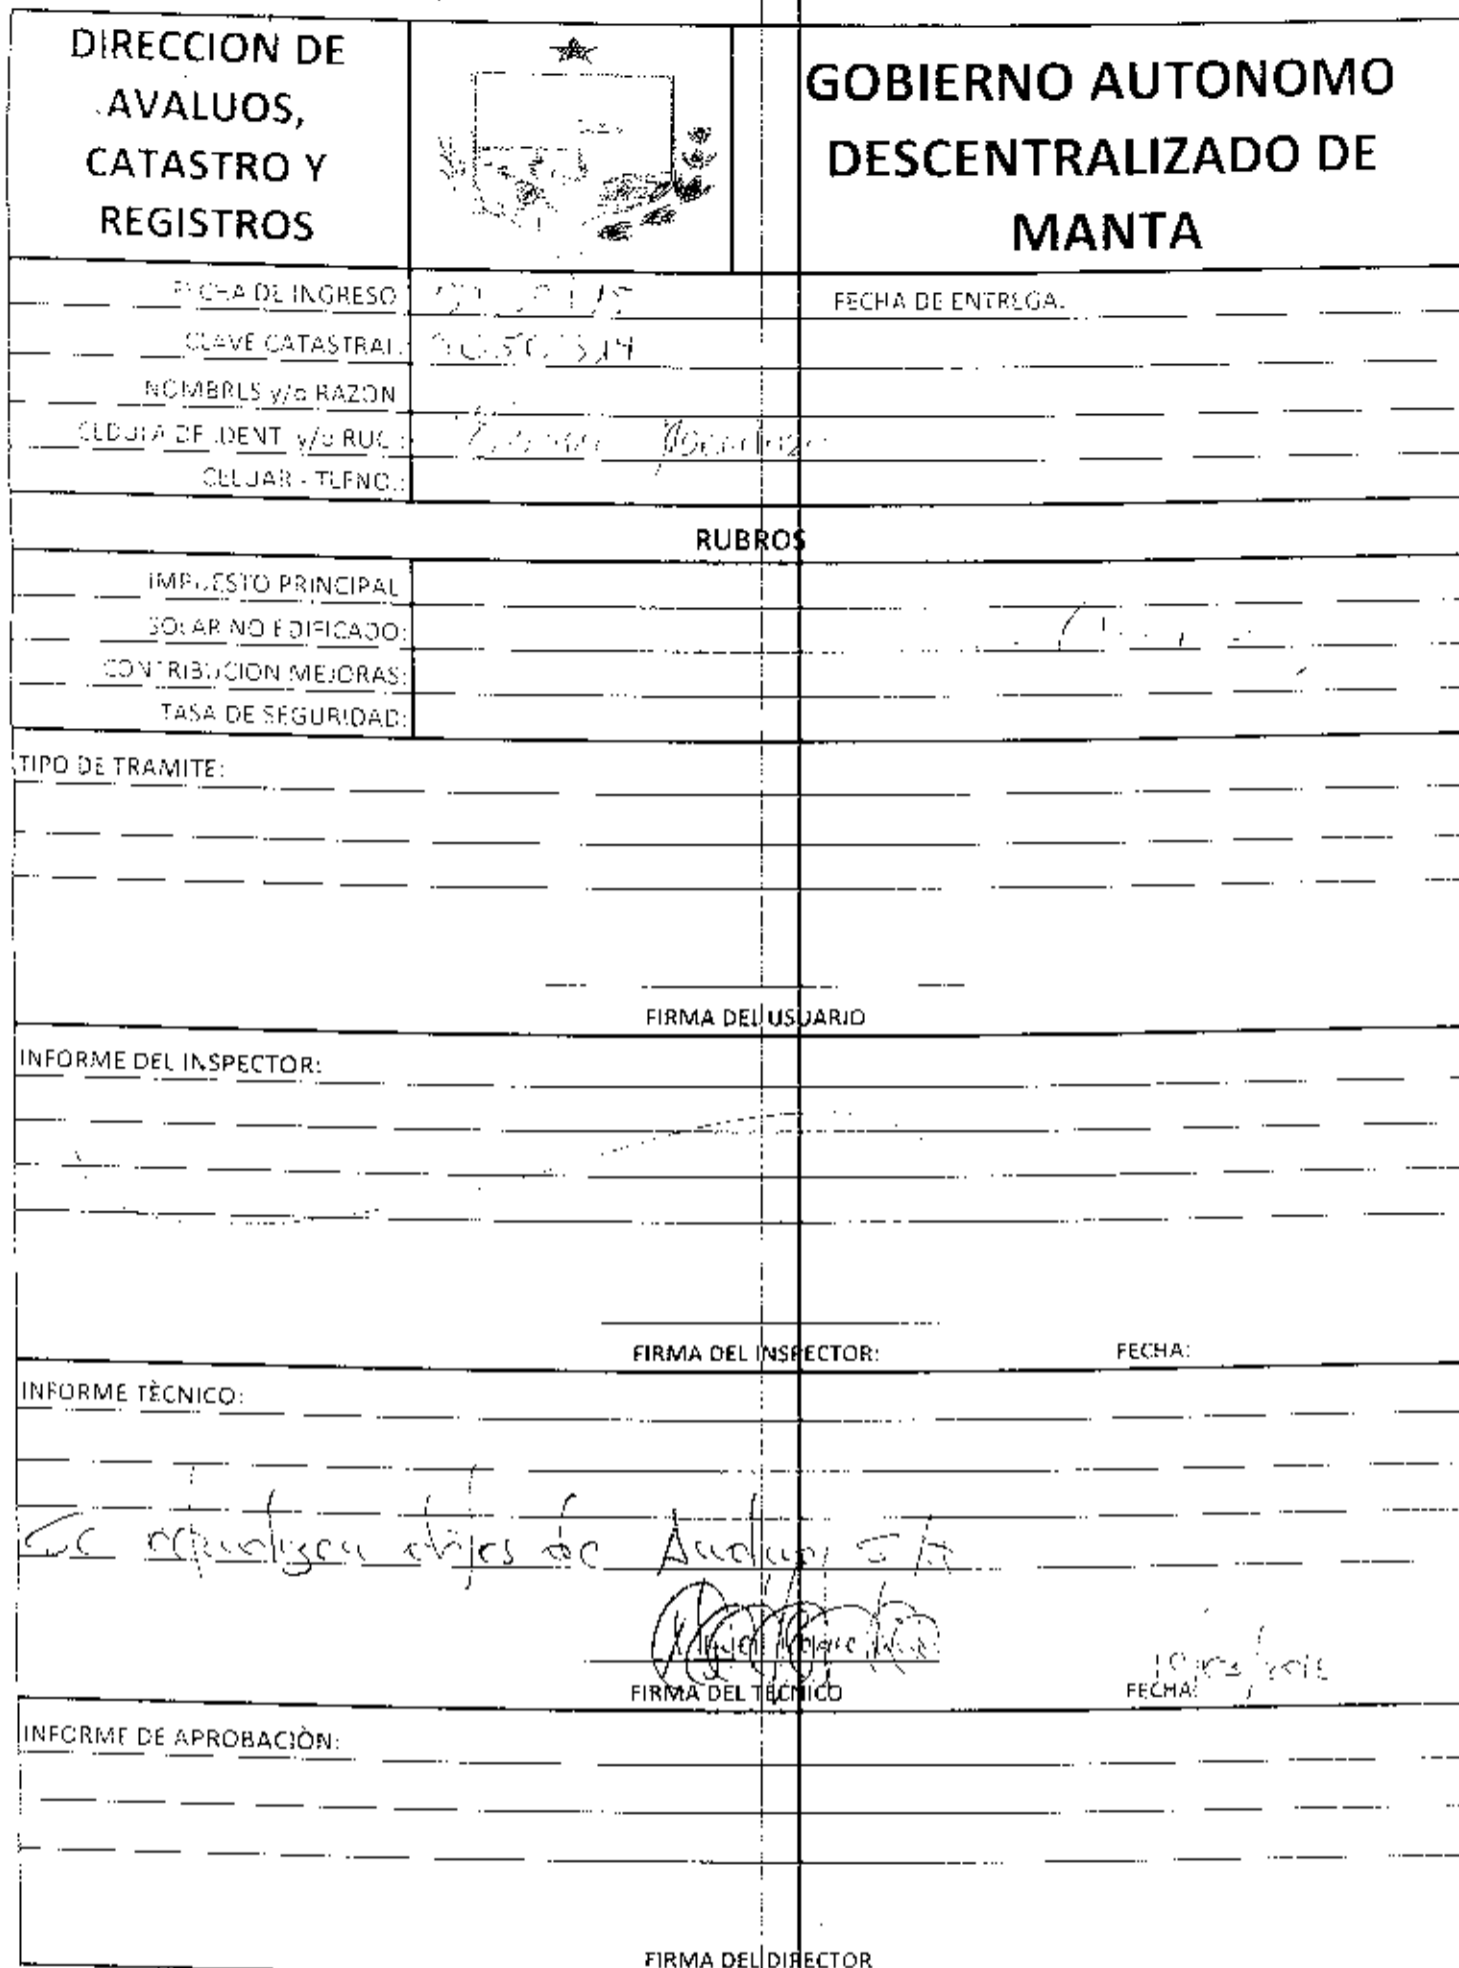 DIRECCION DE
AVALUOS,
CATASTRO Y
REGISTROS
GOBIERNO AUTONOMO
DESCENTRALIZADO DE
MANTA
FECHA DE INGRESO
FECHA DE ENTREGA:
CLAVE CATASTRAL:
NOMBRES y/o RAZON
CEDULA DE IDENT. y/o RUC.:
CELUAR - TLFNO.:
RUBROS
IMPUESTO PRINCIPAL
SOLAR NO EDIFICADO:
CONTRIBUCION MEJORAS:
TASA DE SEGURIDAD:
TIPO DE TRAMITE:
FIRMA DEL USUARIO
INFORME DEL INSPECTOR:
FIRMA DEL INSPECTOR:
FECHA:
INFORME TÈCNICO:
Se de
FIRMA DEL TECNICO
FECHA:
INFORME DE APROBACIÒN:
FIRMA DEL DIRECTOR